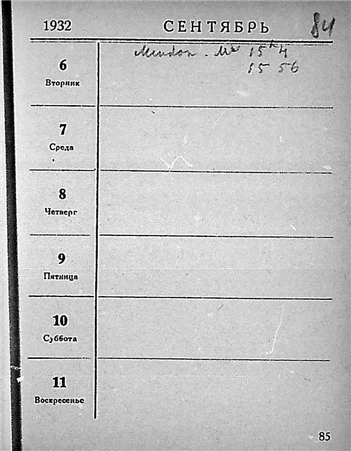 1932 СЕНТЯБРЬ 84
Meudon. 15ʰ 4
15 56
6
Вторник
7
Среда
8
Четверг
9
Пятница
10
Суббота
11
Воскресенье
85